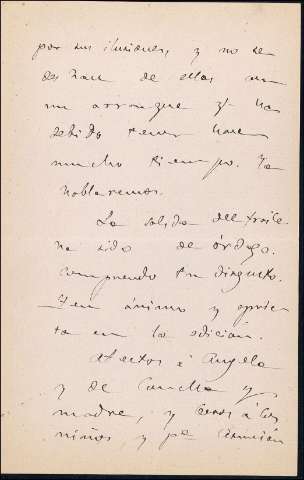 por sus ilusiones, y no se
deshace de ellas con
un arranque q. ha
debido tener hace
mucho tiempo. Ya
hablaremos.
La salida del fraile
ha sido de órdago.
Comprendo tu disgusto.
Ten ánimo y aprie-
ta en la edición.
Afectos á Angela
y de Concha y
madre, y besos á los
niños, y pª